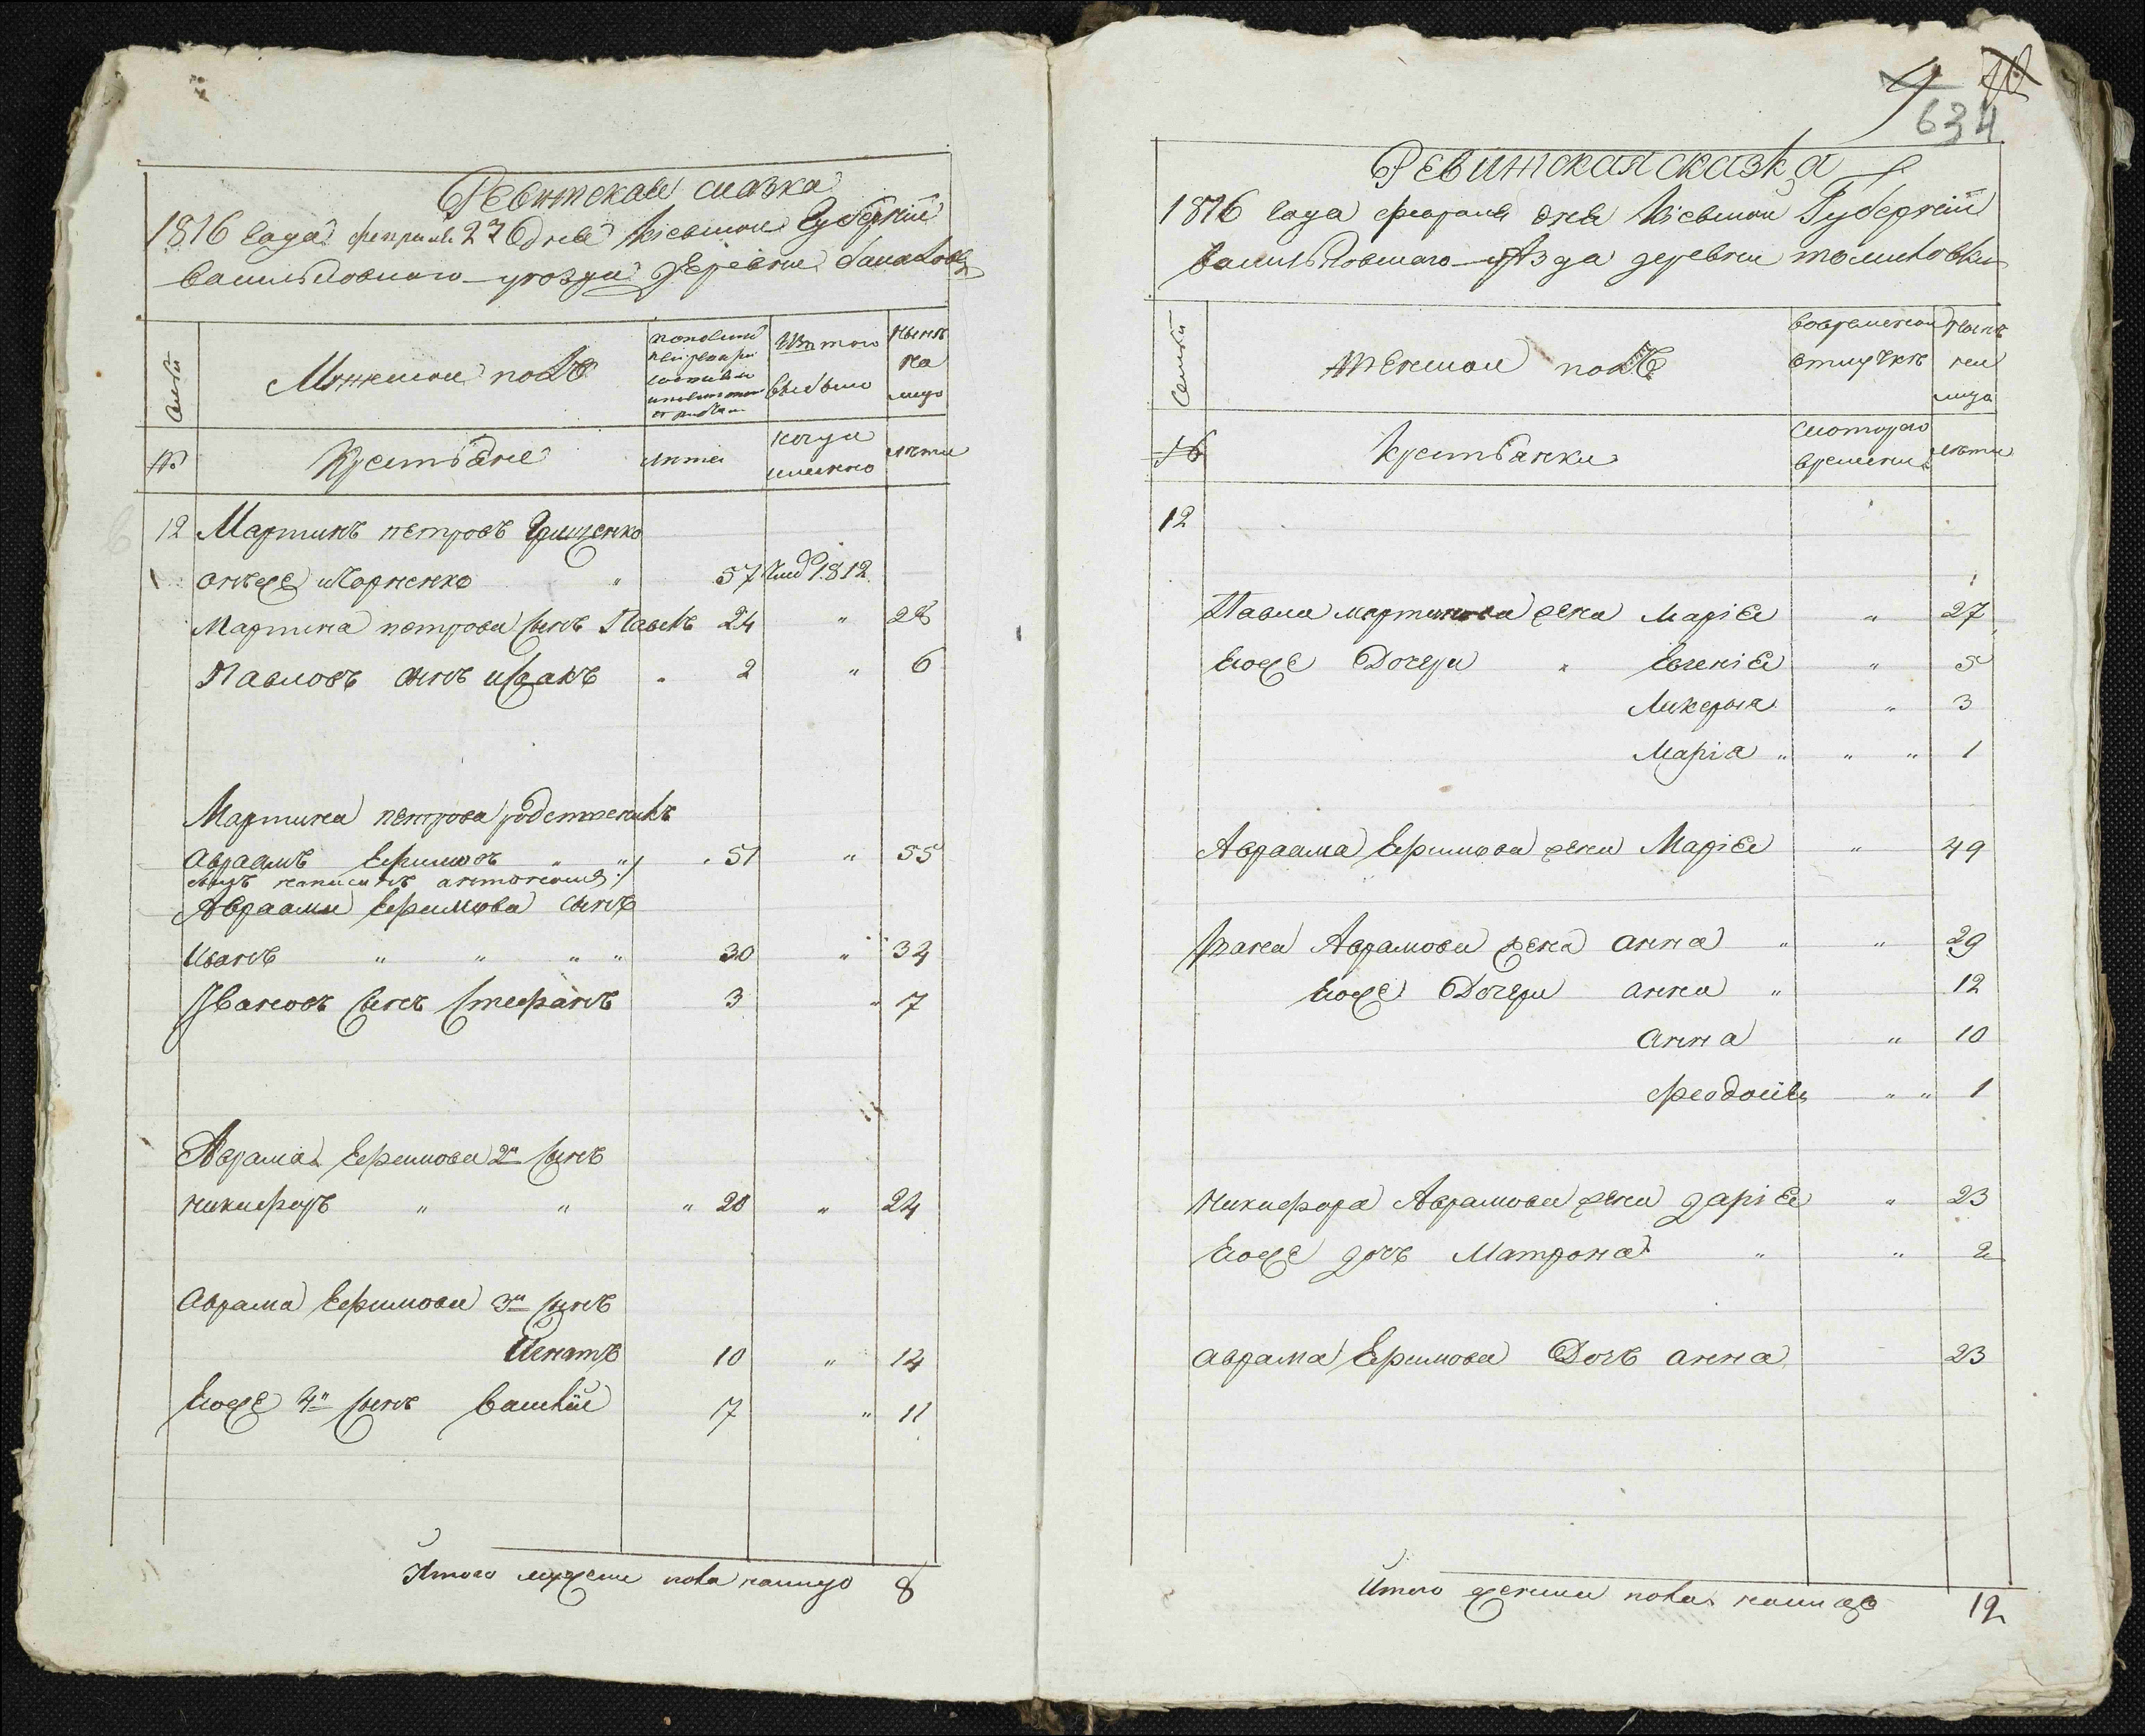 Ревижская сказка
1816 года февраля 27 дня Кіевской Губерніи
васильковского уезда Деревни
Семьи
Мужеской полъ
Изъ того выбыло
Нынѣ на лицо
№
Крестьяне
лета
когда именно
лета
12 Мартинъ петровъ Грищенко
онъ же Марченко " 57 1812
Мартина петрова сынъ Павелъ 24 " 28
Павловъ сынъ Исакъ " 2 " 6
Мартина петрова родственникъ
Авраамъ Ефимовъ " " 51 " 55
Авраама Ефимова сынъ
Иванъ " " " " 30 " 34
Ивановъ сынъ Стефанъ 3 " 7
Аврама Ефимова 2й сынъ
никифоръ " " " 20 " 24
Аврама Ефимова 3й сынъ
Игнатъ 10 " 14
Егоже 4й сынъ василій 7 " 11
Итого мужеска пола налицо 8
9 10
634
Ревижская сказка
1816 года февраля дня Кіевской Губерніи
васильковского уѣзда деревни
Семьи
женской полъ
вовременной отлучкѣ
Нынѣ на лицо
№
Крестьянки
скоторого времени
лета
12
Павла мартинова жена Марія " 27
Егоже Дочери " Евгенія " 5
Ликерья " 3
Марія " " " 1
Авраама Ефимова жена Марія " 49
Ивана Аврамова жена анна " " 29
Егоже Дочери анна " 12
анна " 10
феодосія " " 1
никифора Аврамова жена дарія " 23
Егоже дочь Матрона " " 2
аврама Ефимова Дочь анна 23
Итого женска пола налицо 12